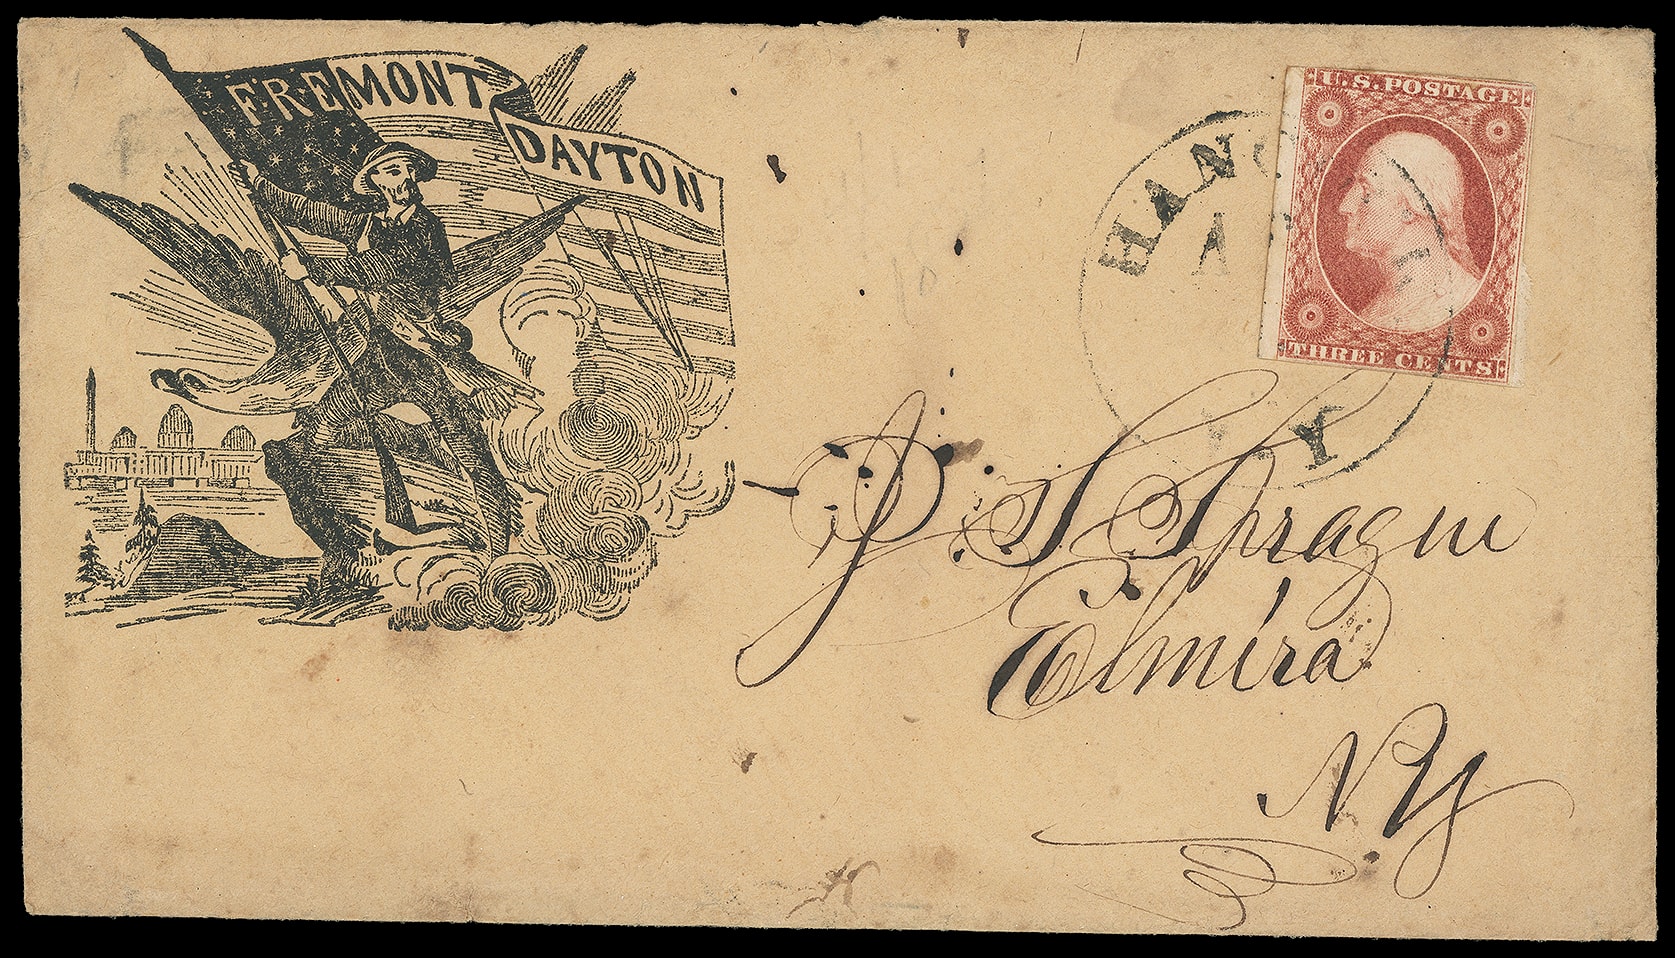 FREMONT
DAYTON
U.S. POSTAGE
THREE CENTS
HANC
A
Y
J S Sprague
Elmira
NY